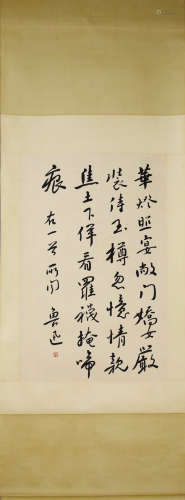 華燈照宴敞門嬌嚴
裝侍玉樽忽憶情親
焦土下佯看羅襪掩啼
痕 右一首所聞 魯迅